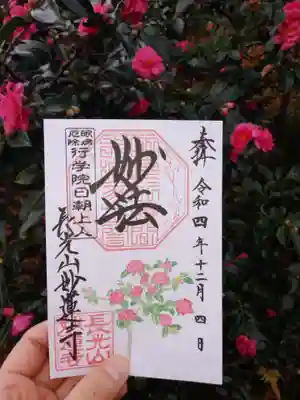 奉拝 令和四年十二月四日
妙法
眼病
厄除
行学院日朝上人
長光山妙蓮寺
長光山
妙蓮寺